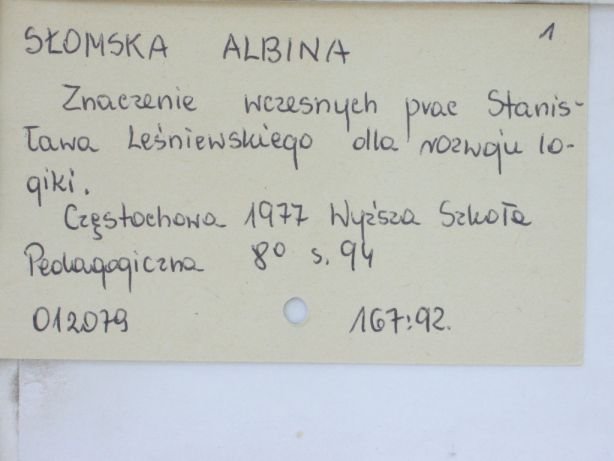 SŁOMSKA ALBINA 1
Znaczenie wczesnych prac Stanis-
ława Leśniewskiego dla rozwoju lo-
giki.
Częstochowa 1977 Wyższa Szkoła
Pedagogiczna 8° s. 94
012079 167:92.